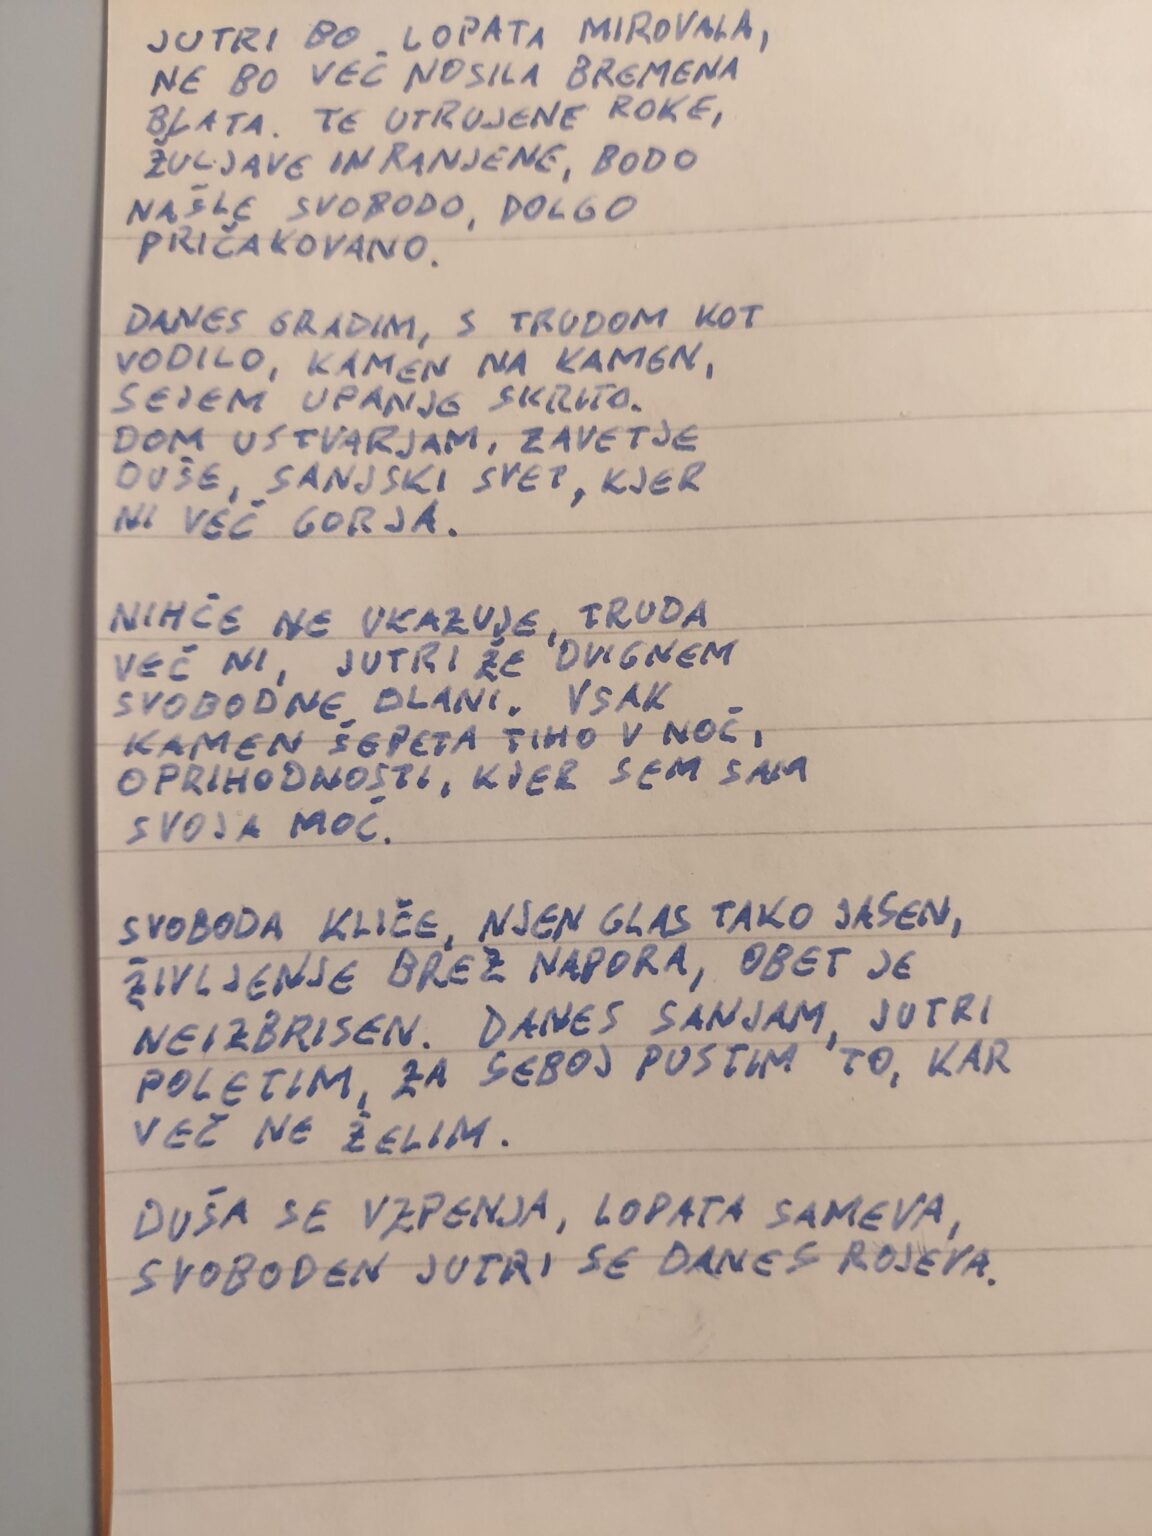 JUTRI BO LOPATA MIROVALA,
NE BO VEČ NOSILA BREMENA
BLATA. TE UTRUJENE ROKE,
ŽULJAVE IN RANJENE, BODO
NAŠLE SVOBODO, DOLGO
PRIČAKOVANO.
DANES GRADIM, S TRUDOM KOT
VODILO, KAMEN NA KAMEN,
SEJEM UPANJE SKRITO.
DOM USTVARJAM, ZAVETJE
DUŠE, SANJSKI SVET, KJER
NI VEČ GORJA.
NIHČE NE UKAZUJE, TRUDA
VEČ NI, JUTRI ŽE DVIGNEM
SVOBODNE DLANI. VSAK
KAMEN ŠEPETA TIHO V NOČ,
O PRIHODNOSTI, KJER SEM SAM
SVOJA MOČ.
SVOBODA KLIČE, NJEN GLAS TAKO JASEN,
ŽIVLJENJE BREZ NAPORA, OBET JE
NEIZBRISEN. DANES SANJAM, JUTRI
POLETIM, ZA SEBOJ PUSTIM TO, KAR
VEČ NE ŽELIM.
DUŠA SE VZPENJA, LOPATA SAMEVA,
SVOBODEN JUTRI SE DANES ROJEVA.